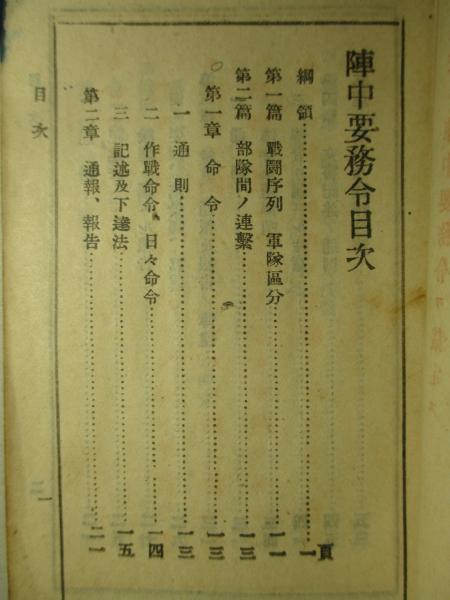 陣中要務令目次
頁
綱領……一
第一篇 戰鬪序列 軍隊區分……一一
第二篇 部隊間ノ連繫……一三
第一章 命令……一三
一 通則……一三
二 作戰命令、日々命令……一四
三 記述及下達法……一五
第二章 通報、報告……二一
目次
一